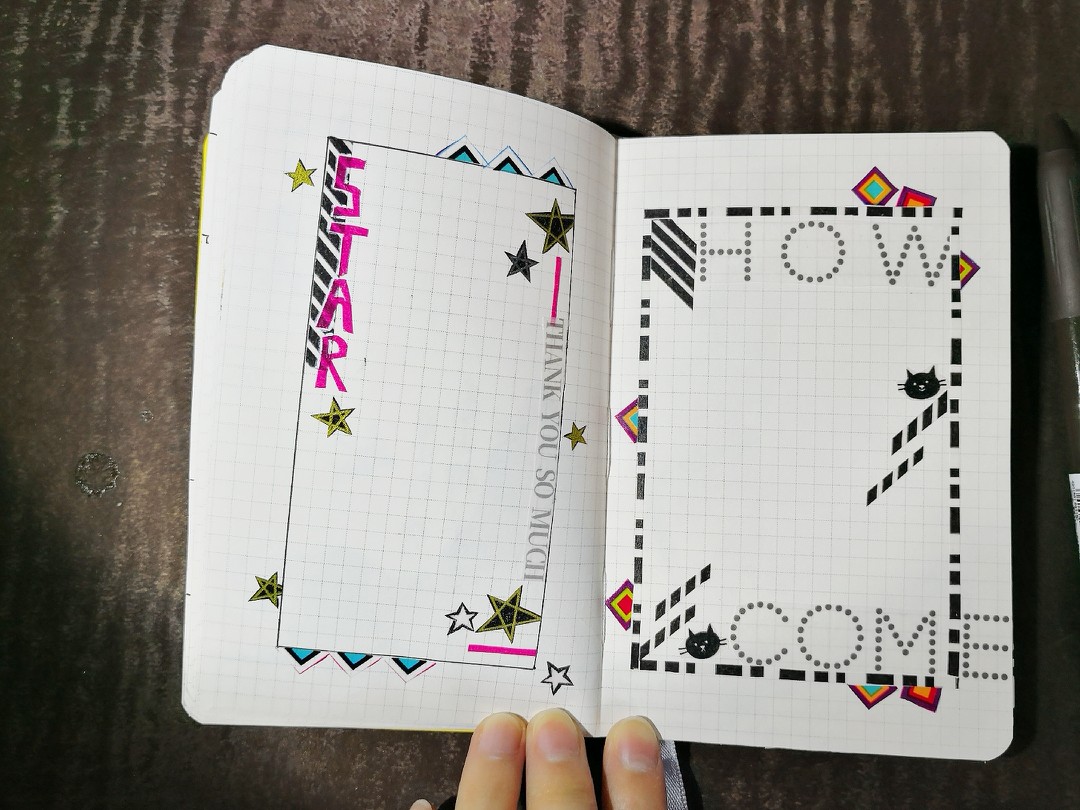 STAR
THANK YOU SO MUCH
HOW
COME